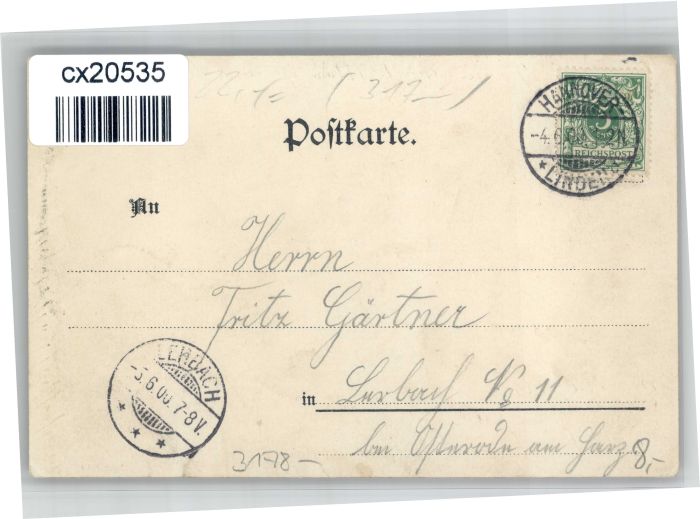 cx20535
Postkarte.
HANNOVER
-4.6.
REICHSPOST
*LINDEN*
An
Herrn
Fritz Gärtner
LERBACH
-5.6.00 7-8V.
in Lerbach No 11
bei Osterode am Harz
3178- 8,-